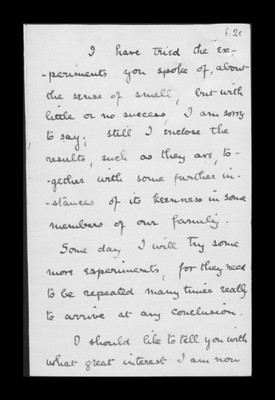 I have tried the ex-
-periments you spoke of, about
the sense of smell, but with
little or no success, I am sorry
to say; still I inclose the
results, such as they are, to-
-gether with some further in-
-stances of its keenness in some
members of our family.
Some day I will try some
more experiments, for they need
to be repeated many times really
to arrive at any conclusion.
I should like to tell you with
what great interest I am now